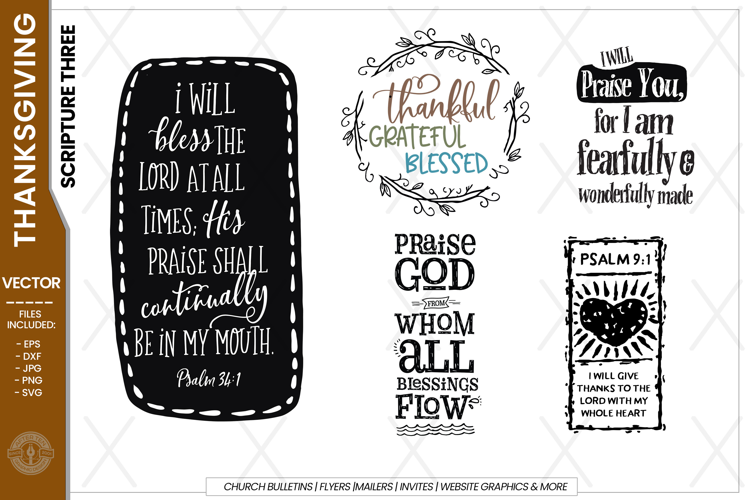 THANKSGIVING
SCRIPTURE THREE
VECTOR
FILES
INCLUDED:
- EPS
- DXF
- JPG
- PNG
- SVG
i WiLL
bless THE
LORD AT ALL
TIMES; His
PRAISE SHALL
continually
BE IN MY MOUTH.
Psalm 34:1
thankful
GRATEFUL
BLESSED
I WILL
Praise You,
for I am
fearfully &
wonderfully made
PRaiSe
GOD
FROM
WHOM
aLL
BLeSSiNGS
FLOW
PSALM 9:1
I WILL GIVE
THANKS TO THE
LORD WITH MY
WHOLE HEART
CHURCH BULLETINS | FLYERS |MAILERS | INVITES | WEBSITE GRAPHICS & MORE